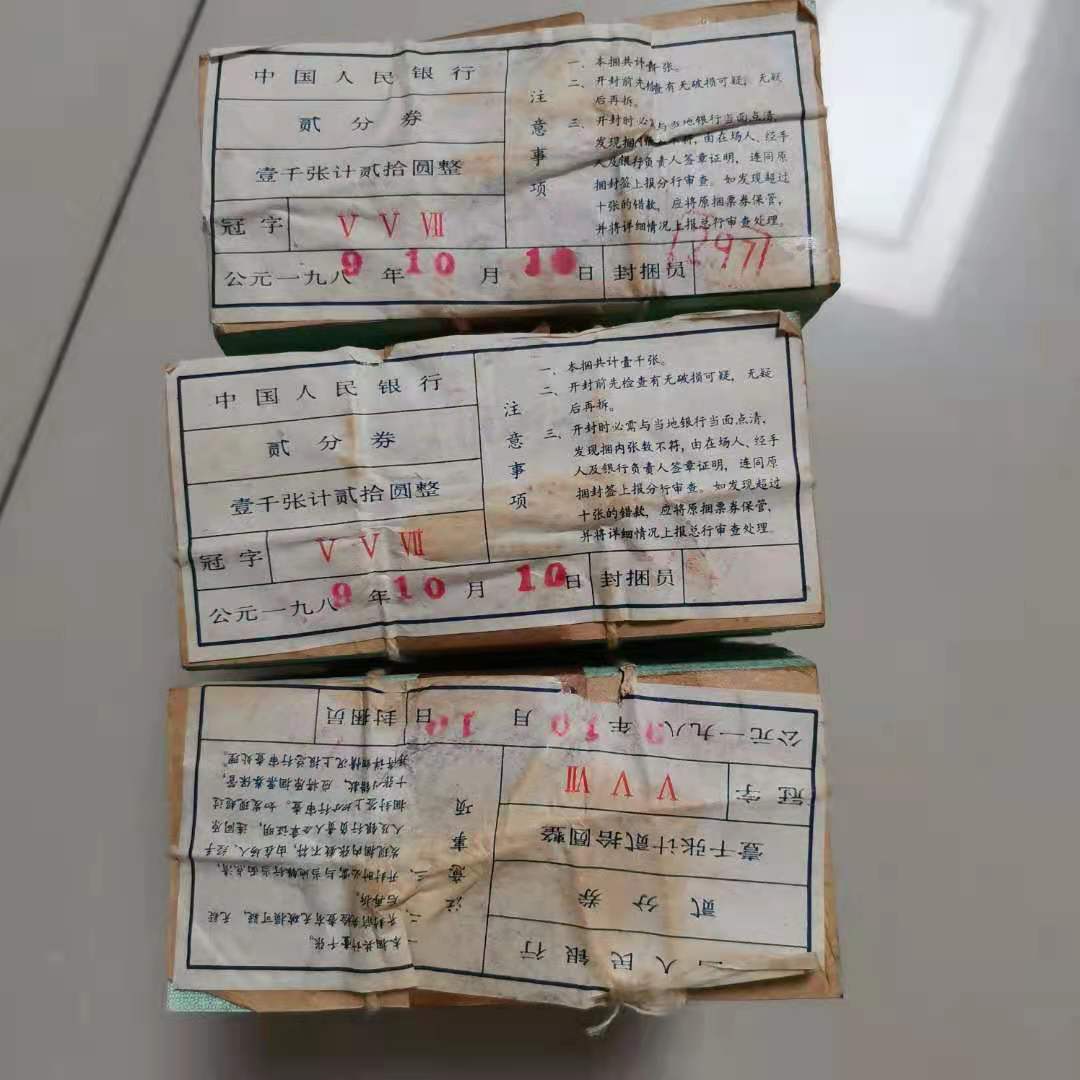 中国人民银行
贰分券
壹千张计贰拾圆整
冠字 V V VII
公元一九八9年10月10日 封捆员
12977
注意事项
一、本捆共计壹千张。
二、开封前先检查有无破损可疑，无疑
后再拆。
三、开封时必与当地银行当面点清，
发现捆不符，由在场人、经手
人及银行负责人签章证明，连同原
捆封签上报分行审查。如发现超过
十张的错款，应将原捆票券保管，
并将详细情况上报总行审查处理。
中国人民银行
贰分券
壹千张计贰拾圆整
冠字 V V VII
公元一九八9年10月10日 封捆员
注意事项
一、本捆共计壹千张。
二、开封前先检查有无破损可疑，无疑
后再拆。
三、开封时必需与当地银行当面点清，
发现捆内张数不符，由在场人、经手
人及银行负责人签章证明，连同原
捆封签上报分行审查。如发现超过
十张的错款，应将原捆票券保管，
并将详细情况上报总行审查处理。
人民银行
贰分券
壹千张计贰拾圆整
冠字 V V VII
公元一九八9年10月10日 封捆员
注意事项
一、本捆共计壹千张。
二、开封前先检查有无破损可疑，无疑
后再拆。
三、开封时必需与当地银行当面点清，
发现捆内张数不符，由在场人、经手
人及银行负责人签章证明，连同原
捆封签上报分行审查。如发现超过
十张的错款，应将原捆票券保管，
并将详细情况上报总行审查处理。